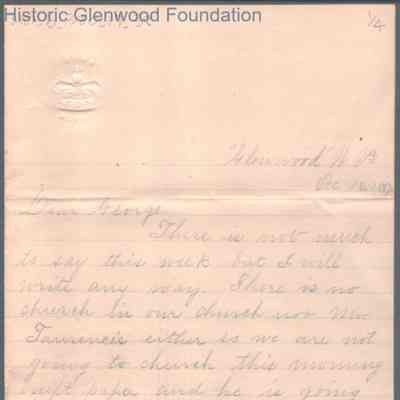 Historic Glenwood Foundation
1/4
Glenwood W. Va
Dec
Dear George
There is not much
to say this week but I will
write any way. There is no
church in our church nor Mr
either so we are not
going to church this morning
papa and he is going